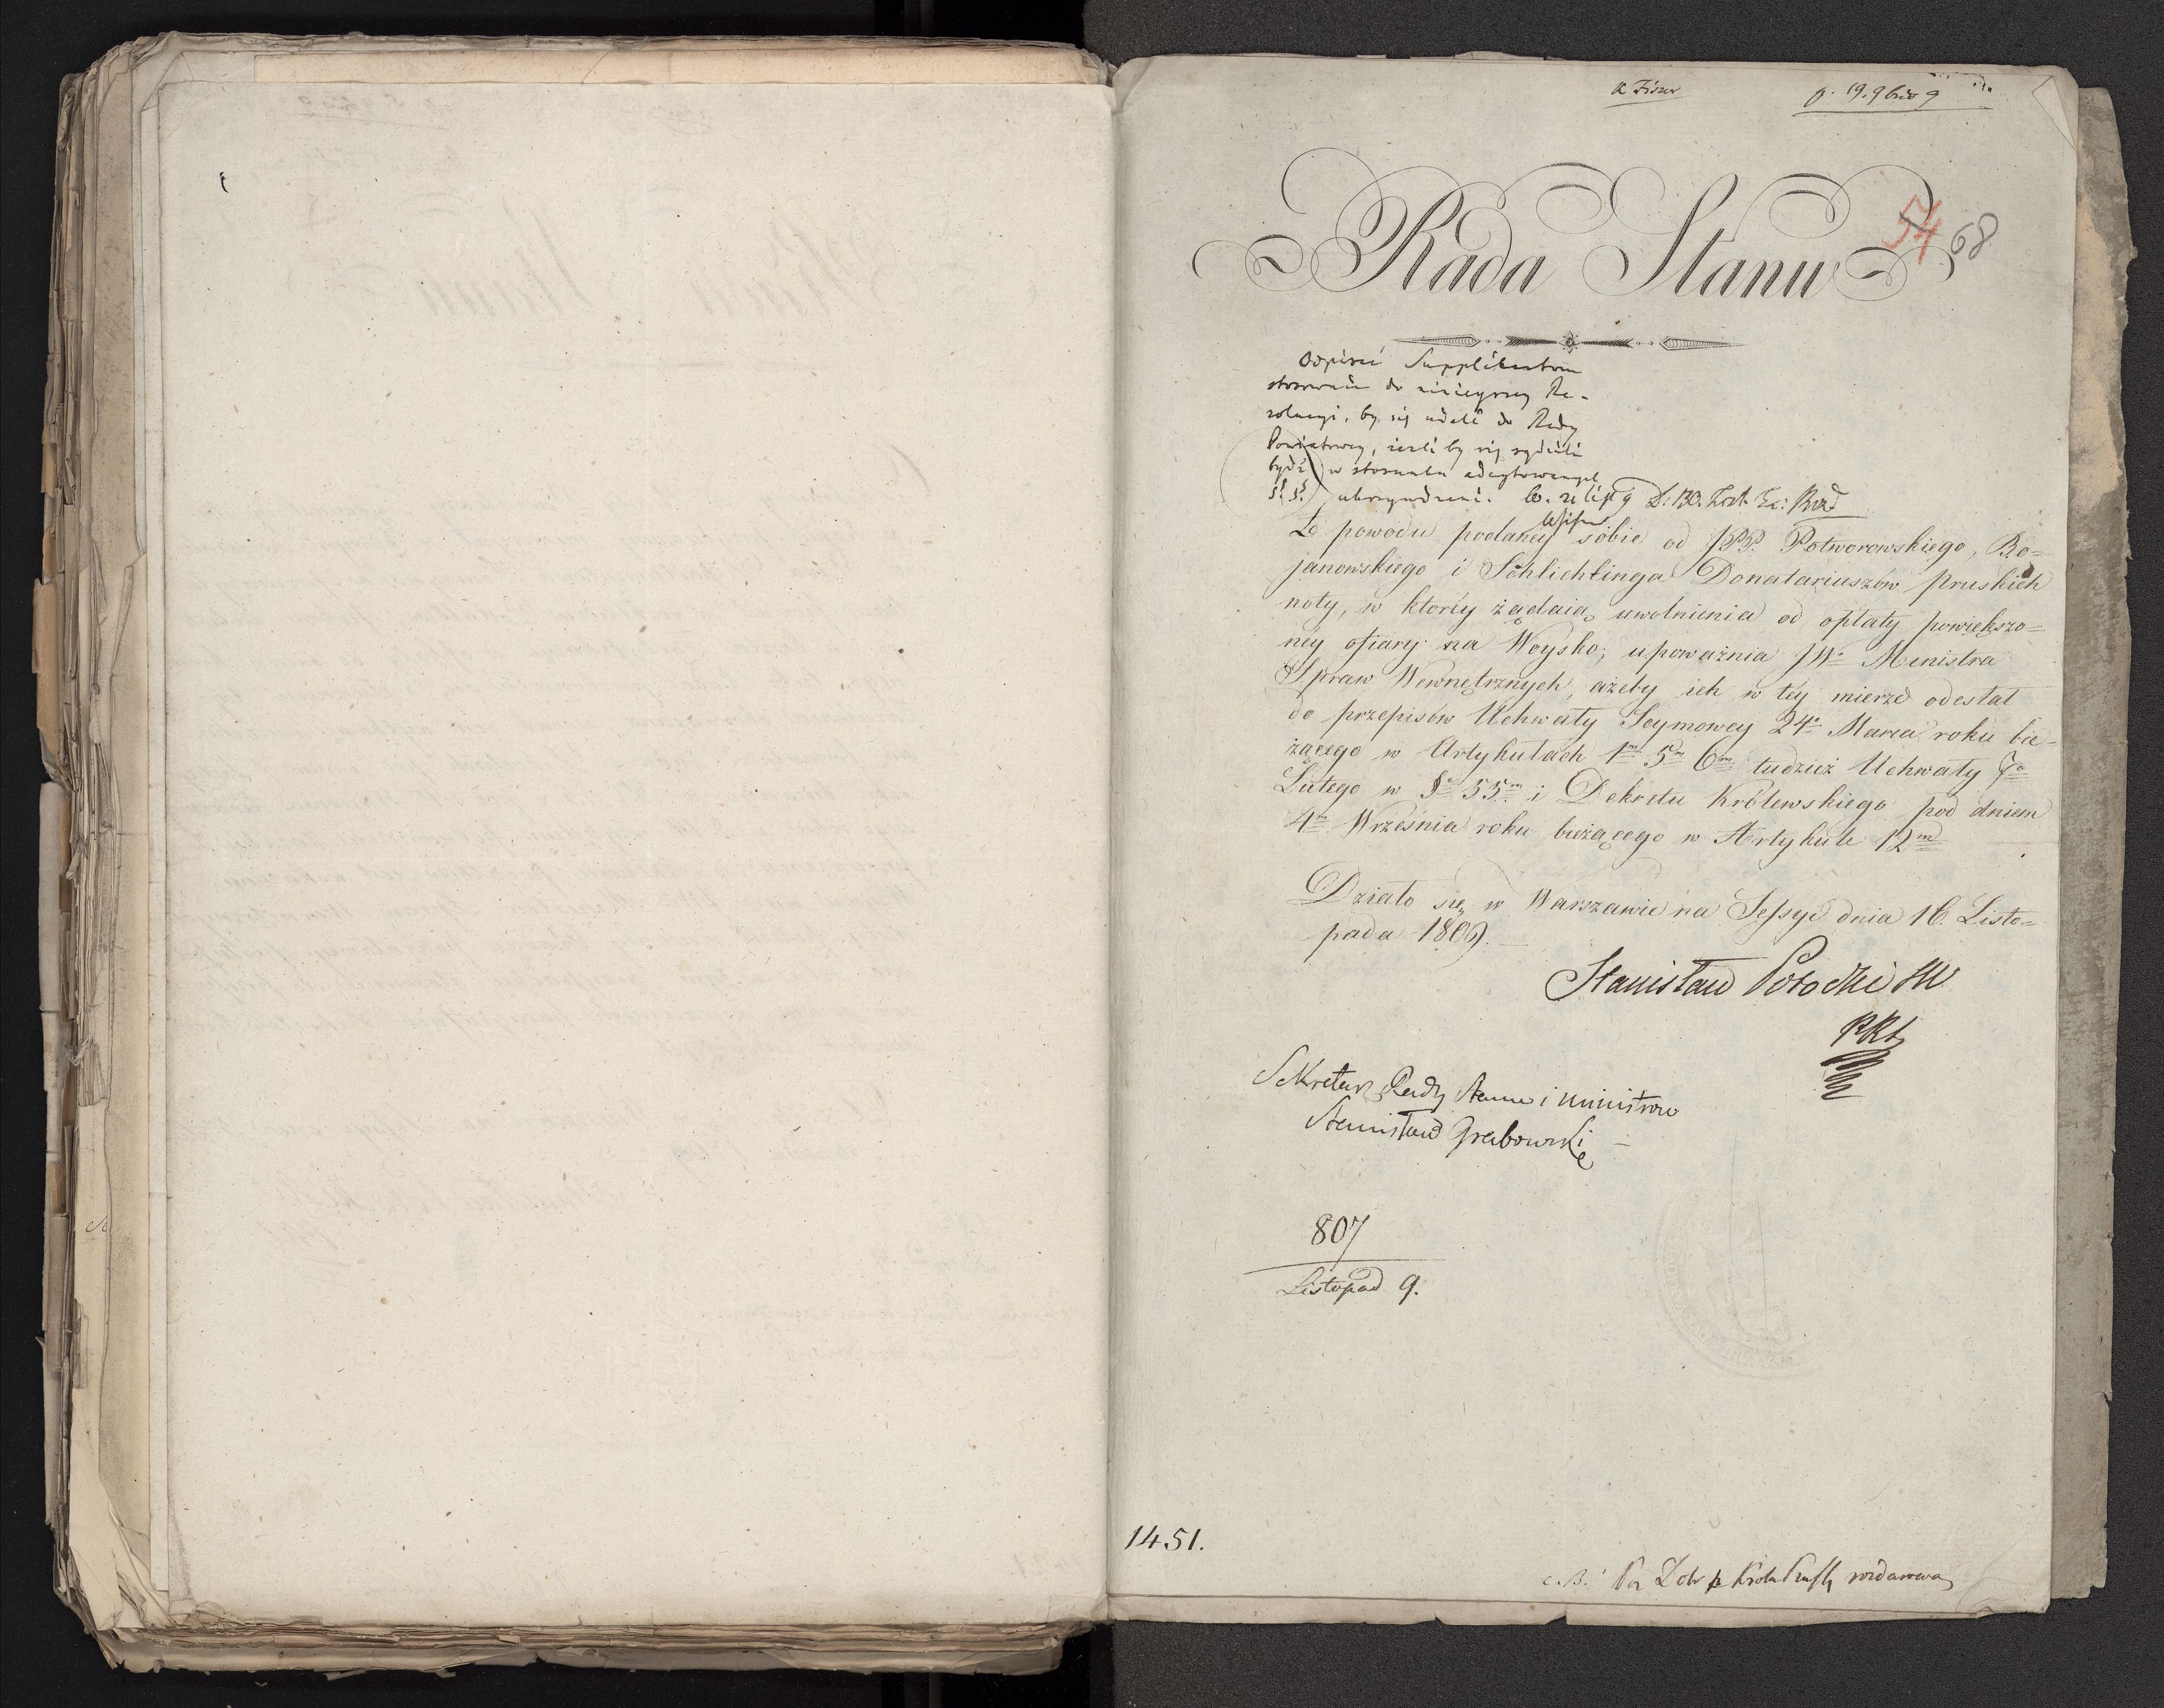 p. 19. 9bris 9
54 68
Rada Stanu
Odpisać Supplikantom
stosownie do niniejszey Re-
zolucyi, by się udali do Rady
Powiatowey, jeżeli by się sądzili
bydź w stosunku adcytowanych
§§. ukrzywdzeni.
Z powodu podaney sobie od JPP. Potworowskiego, Bo=
janowskiego i Schlichtinga Donatariuszów pruskich
noty, w ktorey żądaią uwolnienia od opłaty powiększo=
ney ofiary na Woysko; upoważnia JW. Ministra
Spraw Wewnętrznych, ażeby ich w tey mierze odesłał
do przepisów Uchwały Seymowey 24o Marca roku bie-
żącego w Artykułach 1m 5m 6m tudzież Uchwały 7o
Lutego w §e 55m i Dekretu Królewskiego pod dniem
4m Września roku bieżącego w Artykule 12m
Działo się w Warszawie na Sessyi dnia 16. Listo=
pada 1809.
Stanisław Potocki
Sekretarz Rady Stanu i Ministrow
Stanisław Grabowski
807
Listopad 9.
1451.